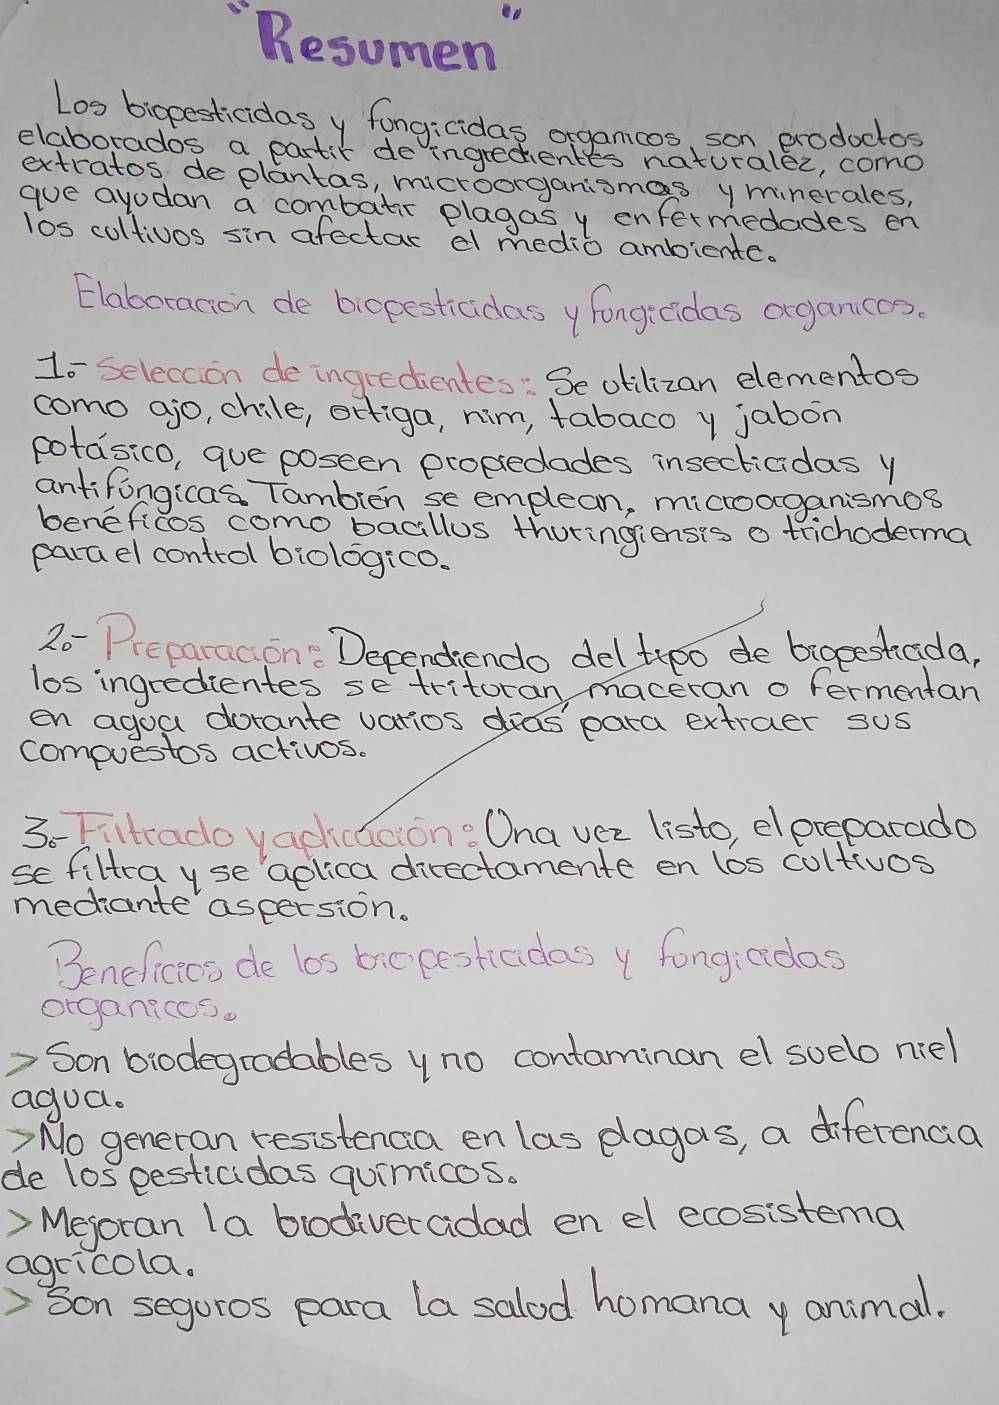 "Resumen"
Los biopesticidas y fungicidas organicos son productos
elaborados a partir de ingredientes naturalez, como
extratos de plantas, microorganismos y minerales,
que ayudan a combatir plagas y enfermedades en
los cultivos sin afectar el medio ambiente.
Elaboración de biopesticidas y fungicidas organicos.
1.- Selección de ingredientes: Se utilizan elementos
como ajo, chile, ortiga, nim, tabaco y jabón
potásico, que poseen propiedades insecticidas y
antifúngicas. Tambien se emplean, microorganismos
benéficos como bacillus thuringiensis o trichoderma
para el control biológico.
2.- Preparación: Dependiendo del tipo de biopesticida,
los ingredientes se trituran, maceran o fermentan
en agua durante varios dias para extraer sus
compuestos activos.
3.- Filtrado y aplicación: Una vez listo, el preparado
se filtra y se aplica directamente en los cultivos
mediante aspersión.
Beneficios de los biopesticidas y fungicidas
organicos.
> Son biodegradables y no contaminan el suelo ni el
agua.
> No generan resistencia en las plagas, a diferencia
de los pesticidas químicos.
> Mejoran la biodivercidad en el ecosistema
agrícola.
> Son seguros para la salud humana y animal.